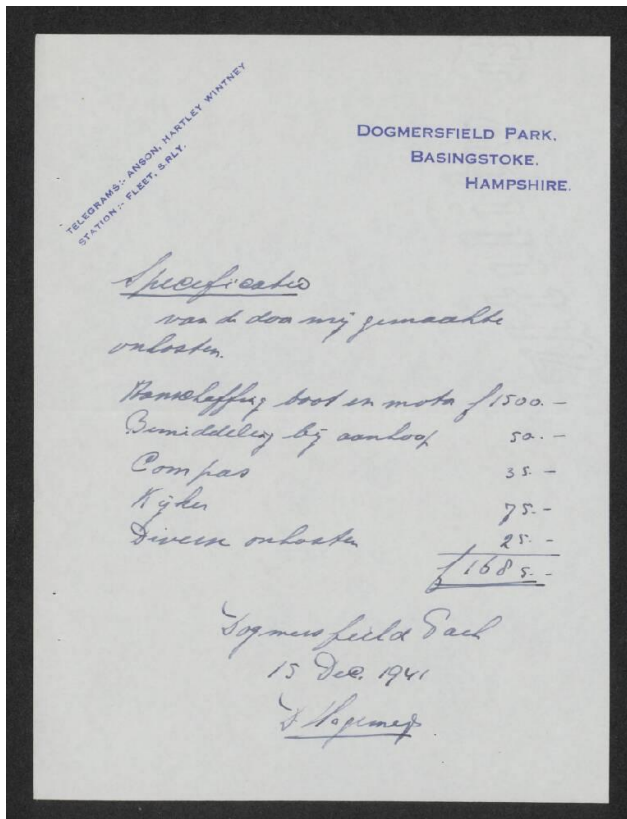 TELEGRAMS:- ANSON, HARTLEY WINTNEY
STATION:- FLEET, S.RLY.
DOGMERSFIELD PARK.
BASINGSTOKE.
HAMPSHIRE.
Specificatie
van de door mij gemaakte
onkosten.
Aanschaffing boot en motor f 1500.-
Bemiddeling bij aankoop 50.-
Compas 35.-
Kijker 75.-
Diverse onkosten 25.-
f 1685.-
Dogmersfield Park
15 Dec. 1941